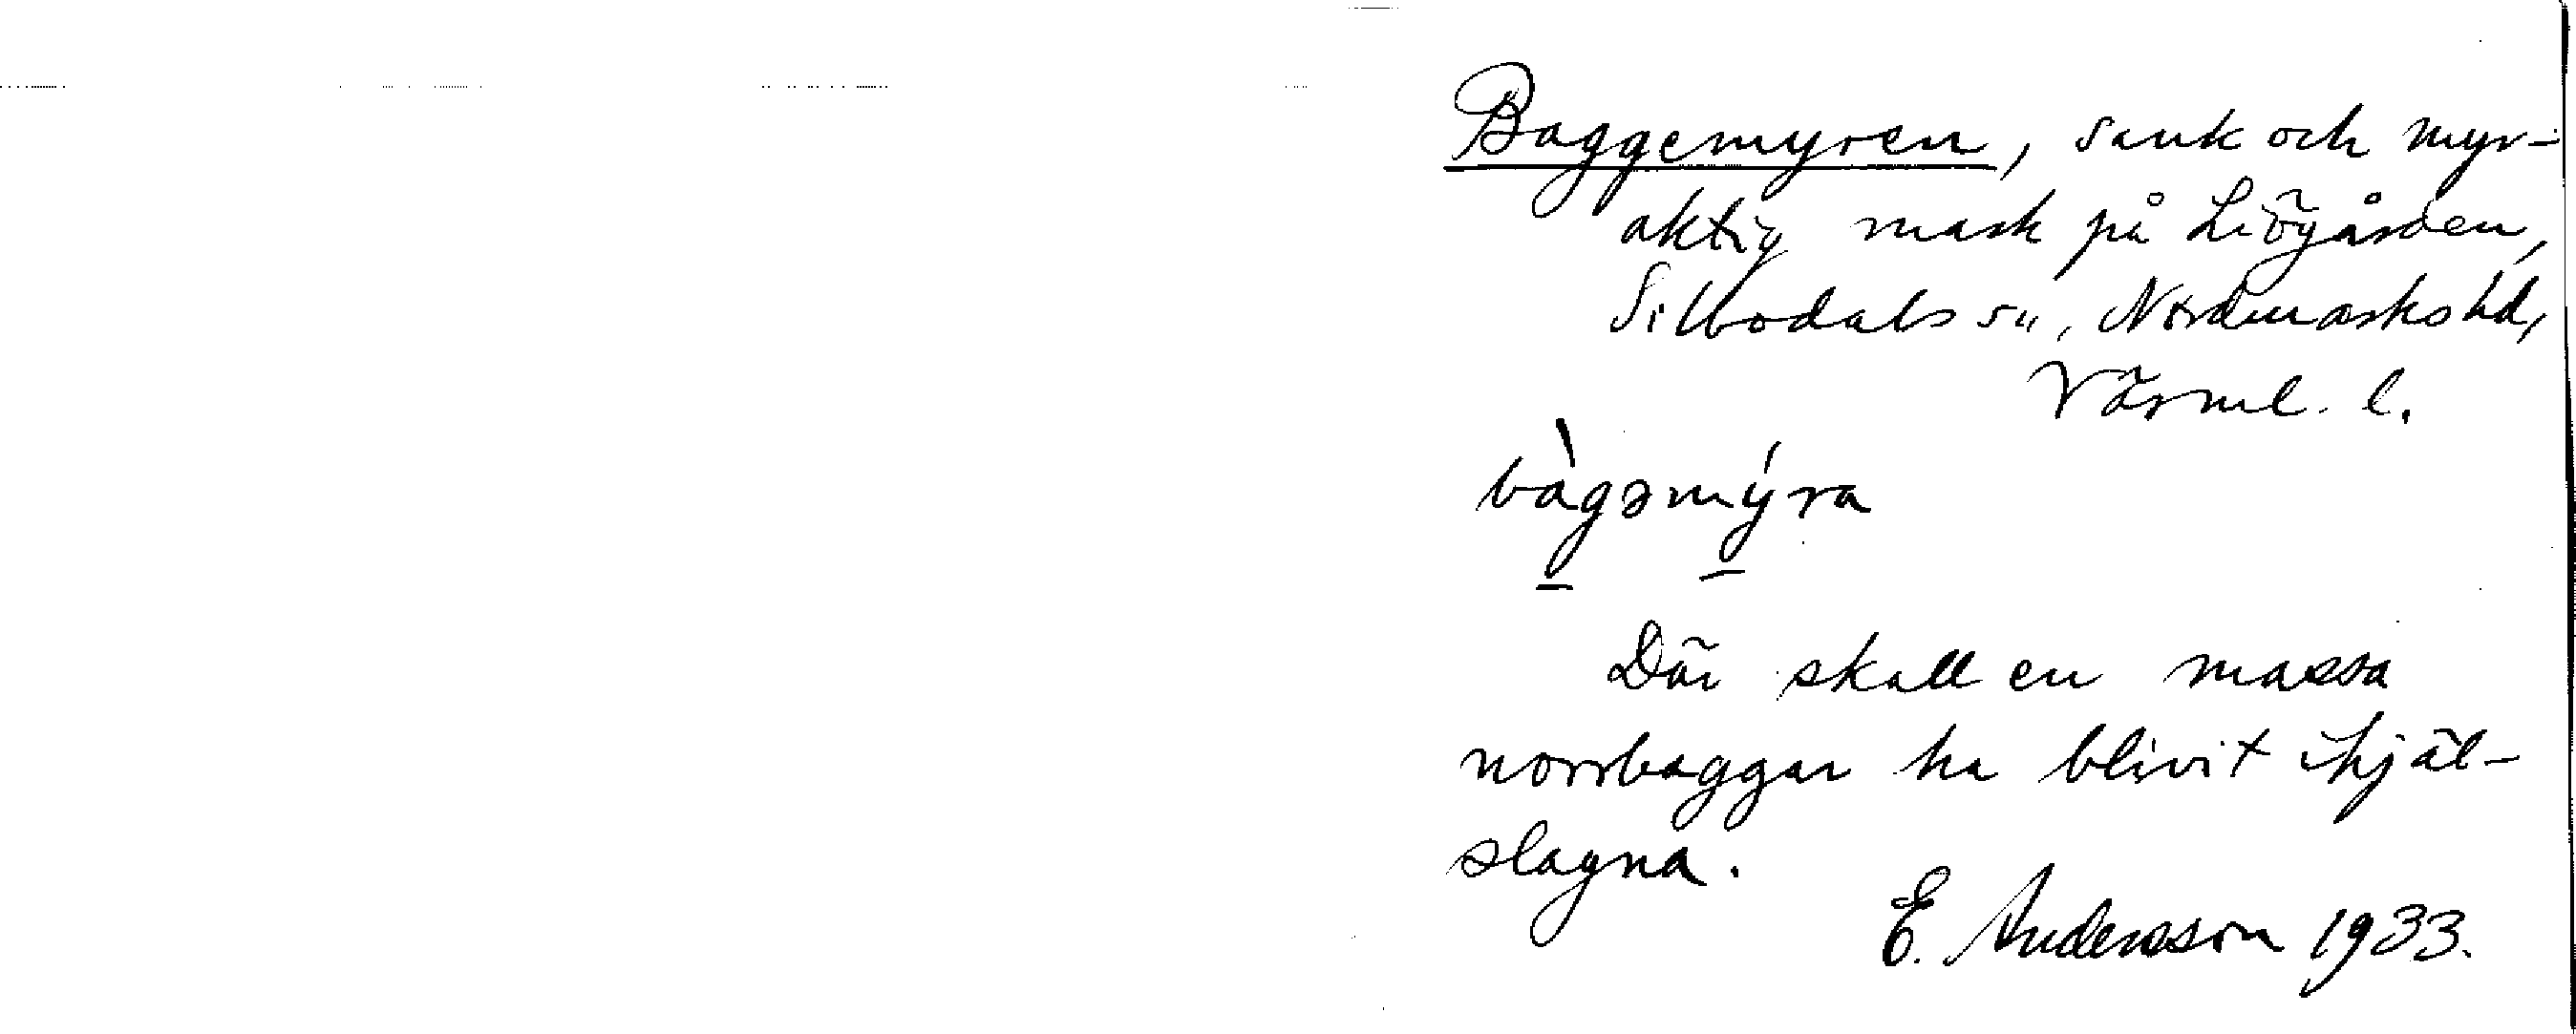 Baggemyren, sank och myr-
aktig mark på Liögården,
Silbodals sn, Nordmarks hd,
Värml. l.
bàgəmýra
Där skall en massa
norrbaggar ha blivit ihjäl-
slagna.
E. Andersson 1933.